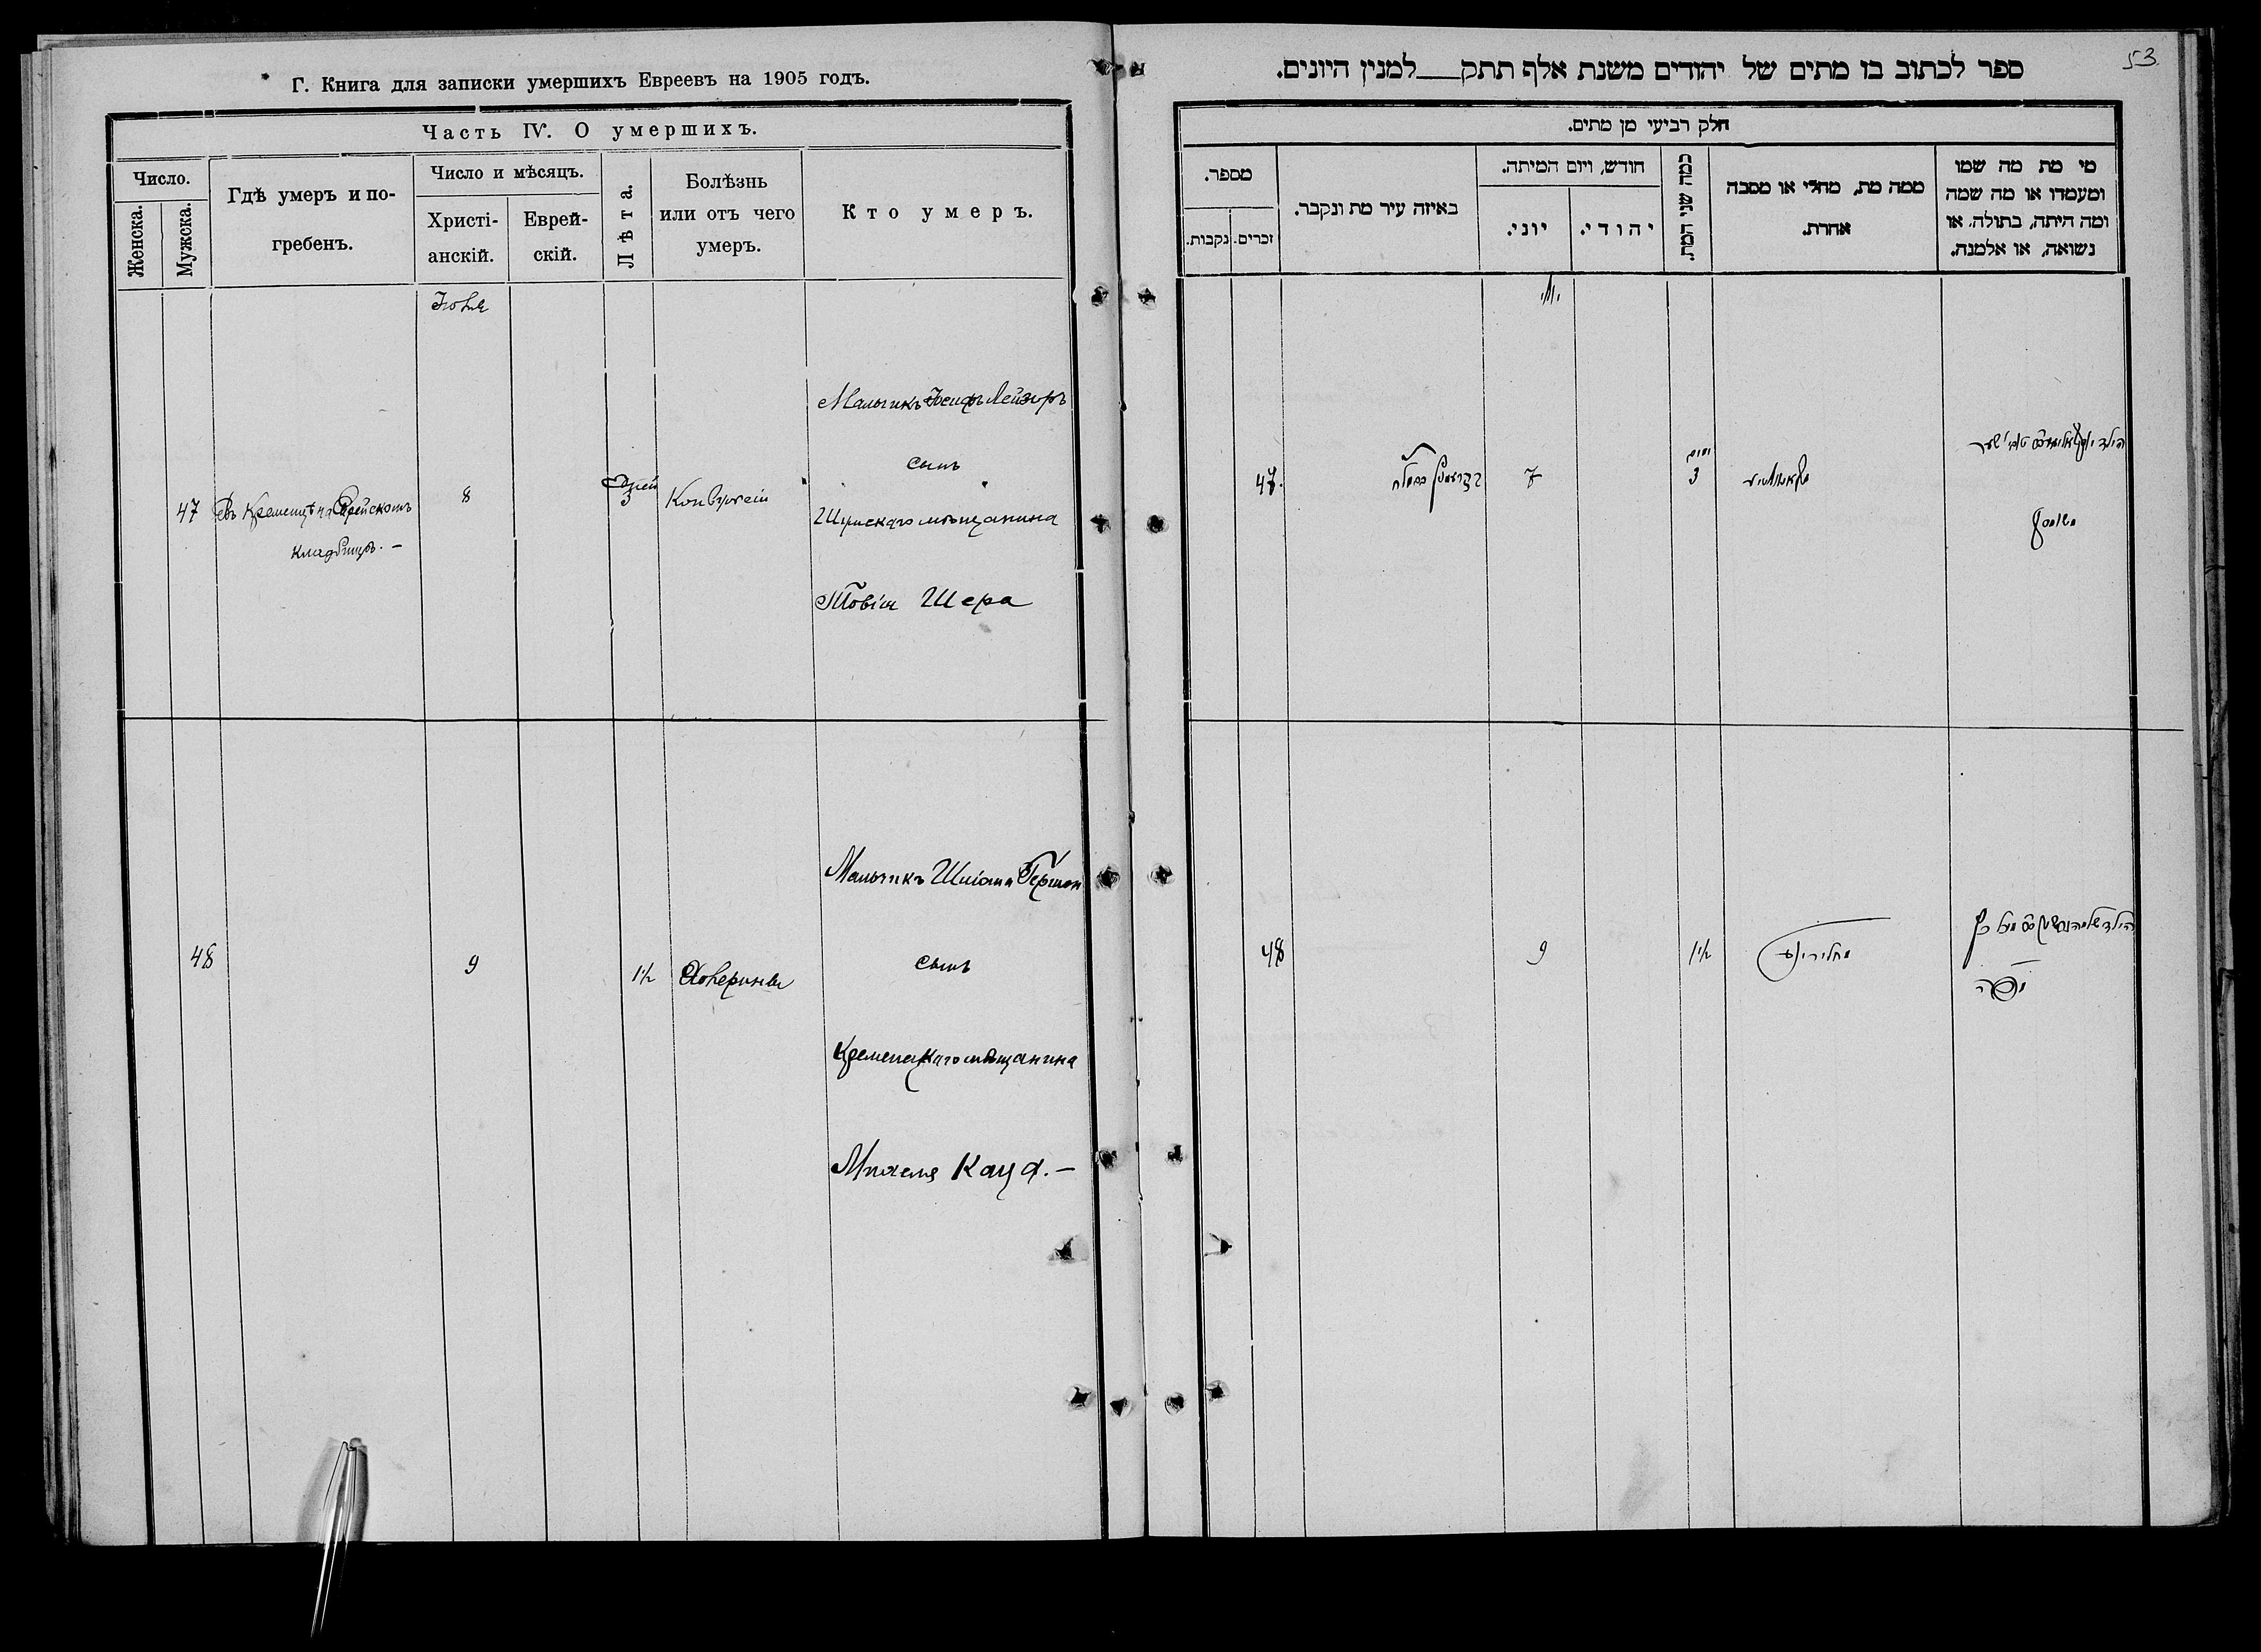 Г. Книга для записки умершихъ Евреевъ на 1905 годъ.
Часть IV. О умершихъ.
Число.
Женска.
Мужска.
Гдѣ умеръ и по-
гребенъ.
Число и мѣсяцъ.
Христі-
анскій.
Еврей-
скій.
Лѣта.
Болѣзнь
или отъ чего
умеръ.
Кто умеръ.
47
Въ Кременцѣ на Еврейскомъ
кладбищѣ. —
8
дней
3
Мальчикъ Іосифъ Лейзоръ
сынъ
Шумскаго мѣщанина
Товія Шера
48
9
1½
Мальчикъ Шлома Гершон
сынъ
Кременецкаго мѣщанина
Михеля Каца. —
53.
ספר לכתוב בו מתים של יהודים משנת אלף תתק למנין היונים.
חלק רביעי מן מתים.
מספר.
נקבות.
זכרים.
באיזה עיר מת ונקבר.
חודש, ויום המיתה.
יוני.
יהודי.
כמה שני המת.
ממה מת, מחלי או מסבה
אחרת.
מי מת מה שמו
ומעמדו או מה שמה
ומה היתה, בתולה, או
נשואה, או אלמנה.
47.
ימים
3
הילד
48
9
1½
הילד